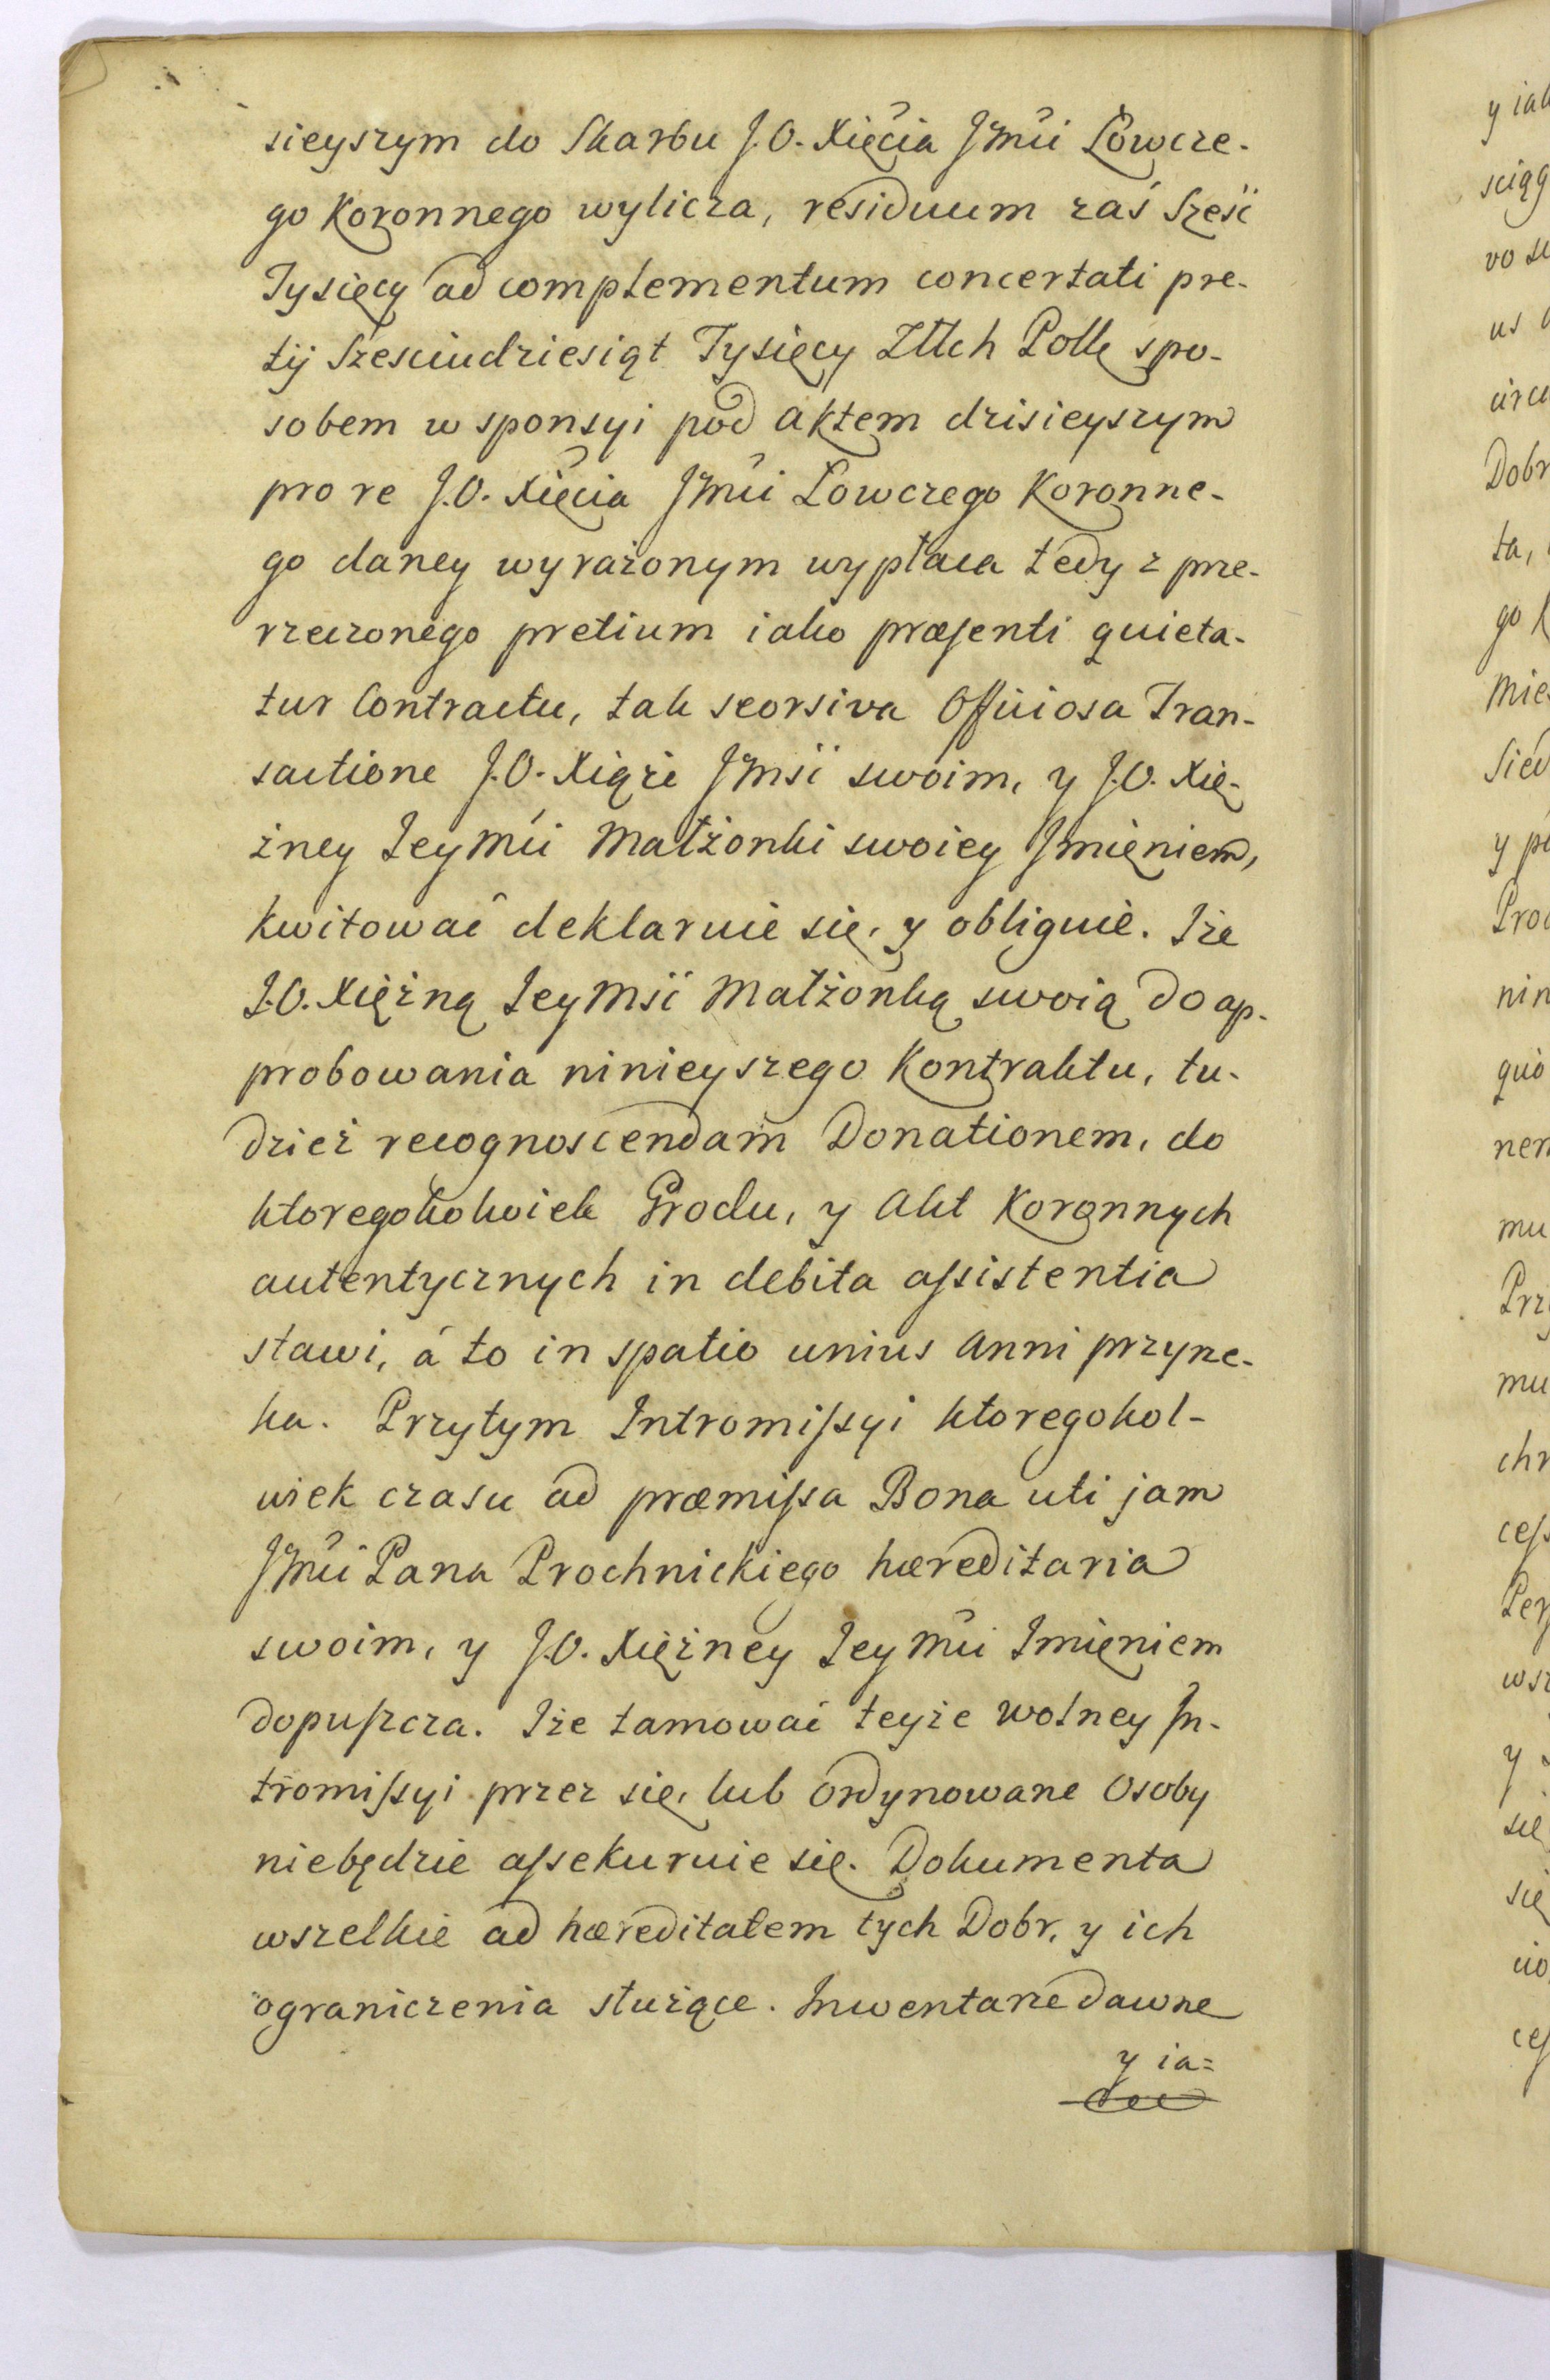 sieyszym do Skarbu J.O. Xięcia Jmći Łowcze-
go Koronnego wylicza, residuum zaś Sześć
Tysięcy ad complementum concertati pre-
tij Sześciudziesiąt Tysięcy Złłch Polk spo-
sobem w sponsyi pod aktem dzisieyszym
pro re J.O. Xięcia Jmći Łowczego Koronne-
go daney wyrażonym wypłaca tedy z prze-
rzeczonego pretium iako præsenti quieta-
tur Contractu, tak seorsiva Officiosa Tran-
sactione J.O. Xiąże Jmść swoim, y J.O. Xię-
żney Jeymći Małżonki swoiey Jmięniem,
kwitować deklaruie się, y obliguie. Iże
J.O. Xiężną JeyMść Małżonką swoią do ap-
probowania ninieyszego Kontraktu, tu-
dzież recognoscendam Donationem, do
ktoregokolwiek Grodu, y Akt Koronnych
autentycznych in debita assistentia
stawi, á to in spatio unius Anni przyrze-
ka. Przytym Intromissyi ktoregokol-
wiek czasu ad præmissa Bona uti jam
Jmći Pana Prochnickiego hæreditaria
swoim, y J.O. Xiężney Jeymći Imięniem
dopuszcza. Iże tamować teyże wolney In-
tromissyi przez się, lub ordynowane Osoby
niebędzie assekuruie się. Dokumenta
wszelkie ad hæreditatem tych Dobr, y ich
ograniczenia służące. Inwentarze dawne
y ia=
y iak
sciąg
vo
us
circu
Dobr
ta,
go K
Mie
Sied
y
Pro
nin
quo
nem
mu
Prz
mu
chr
cess
Per
wsz
y
się
się
cio
cess